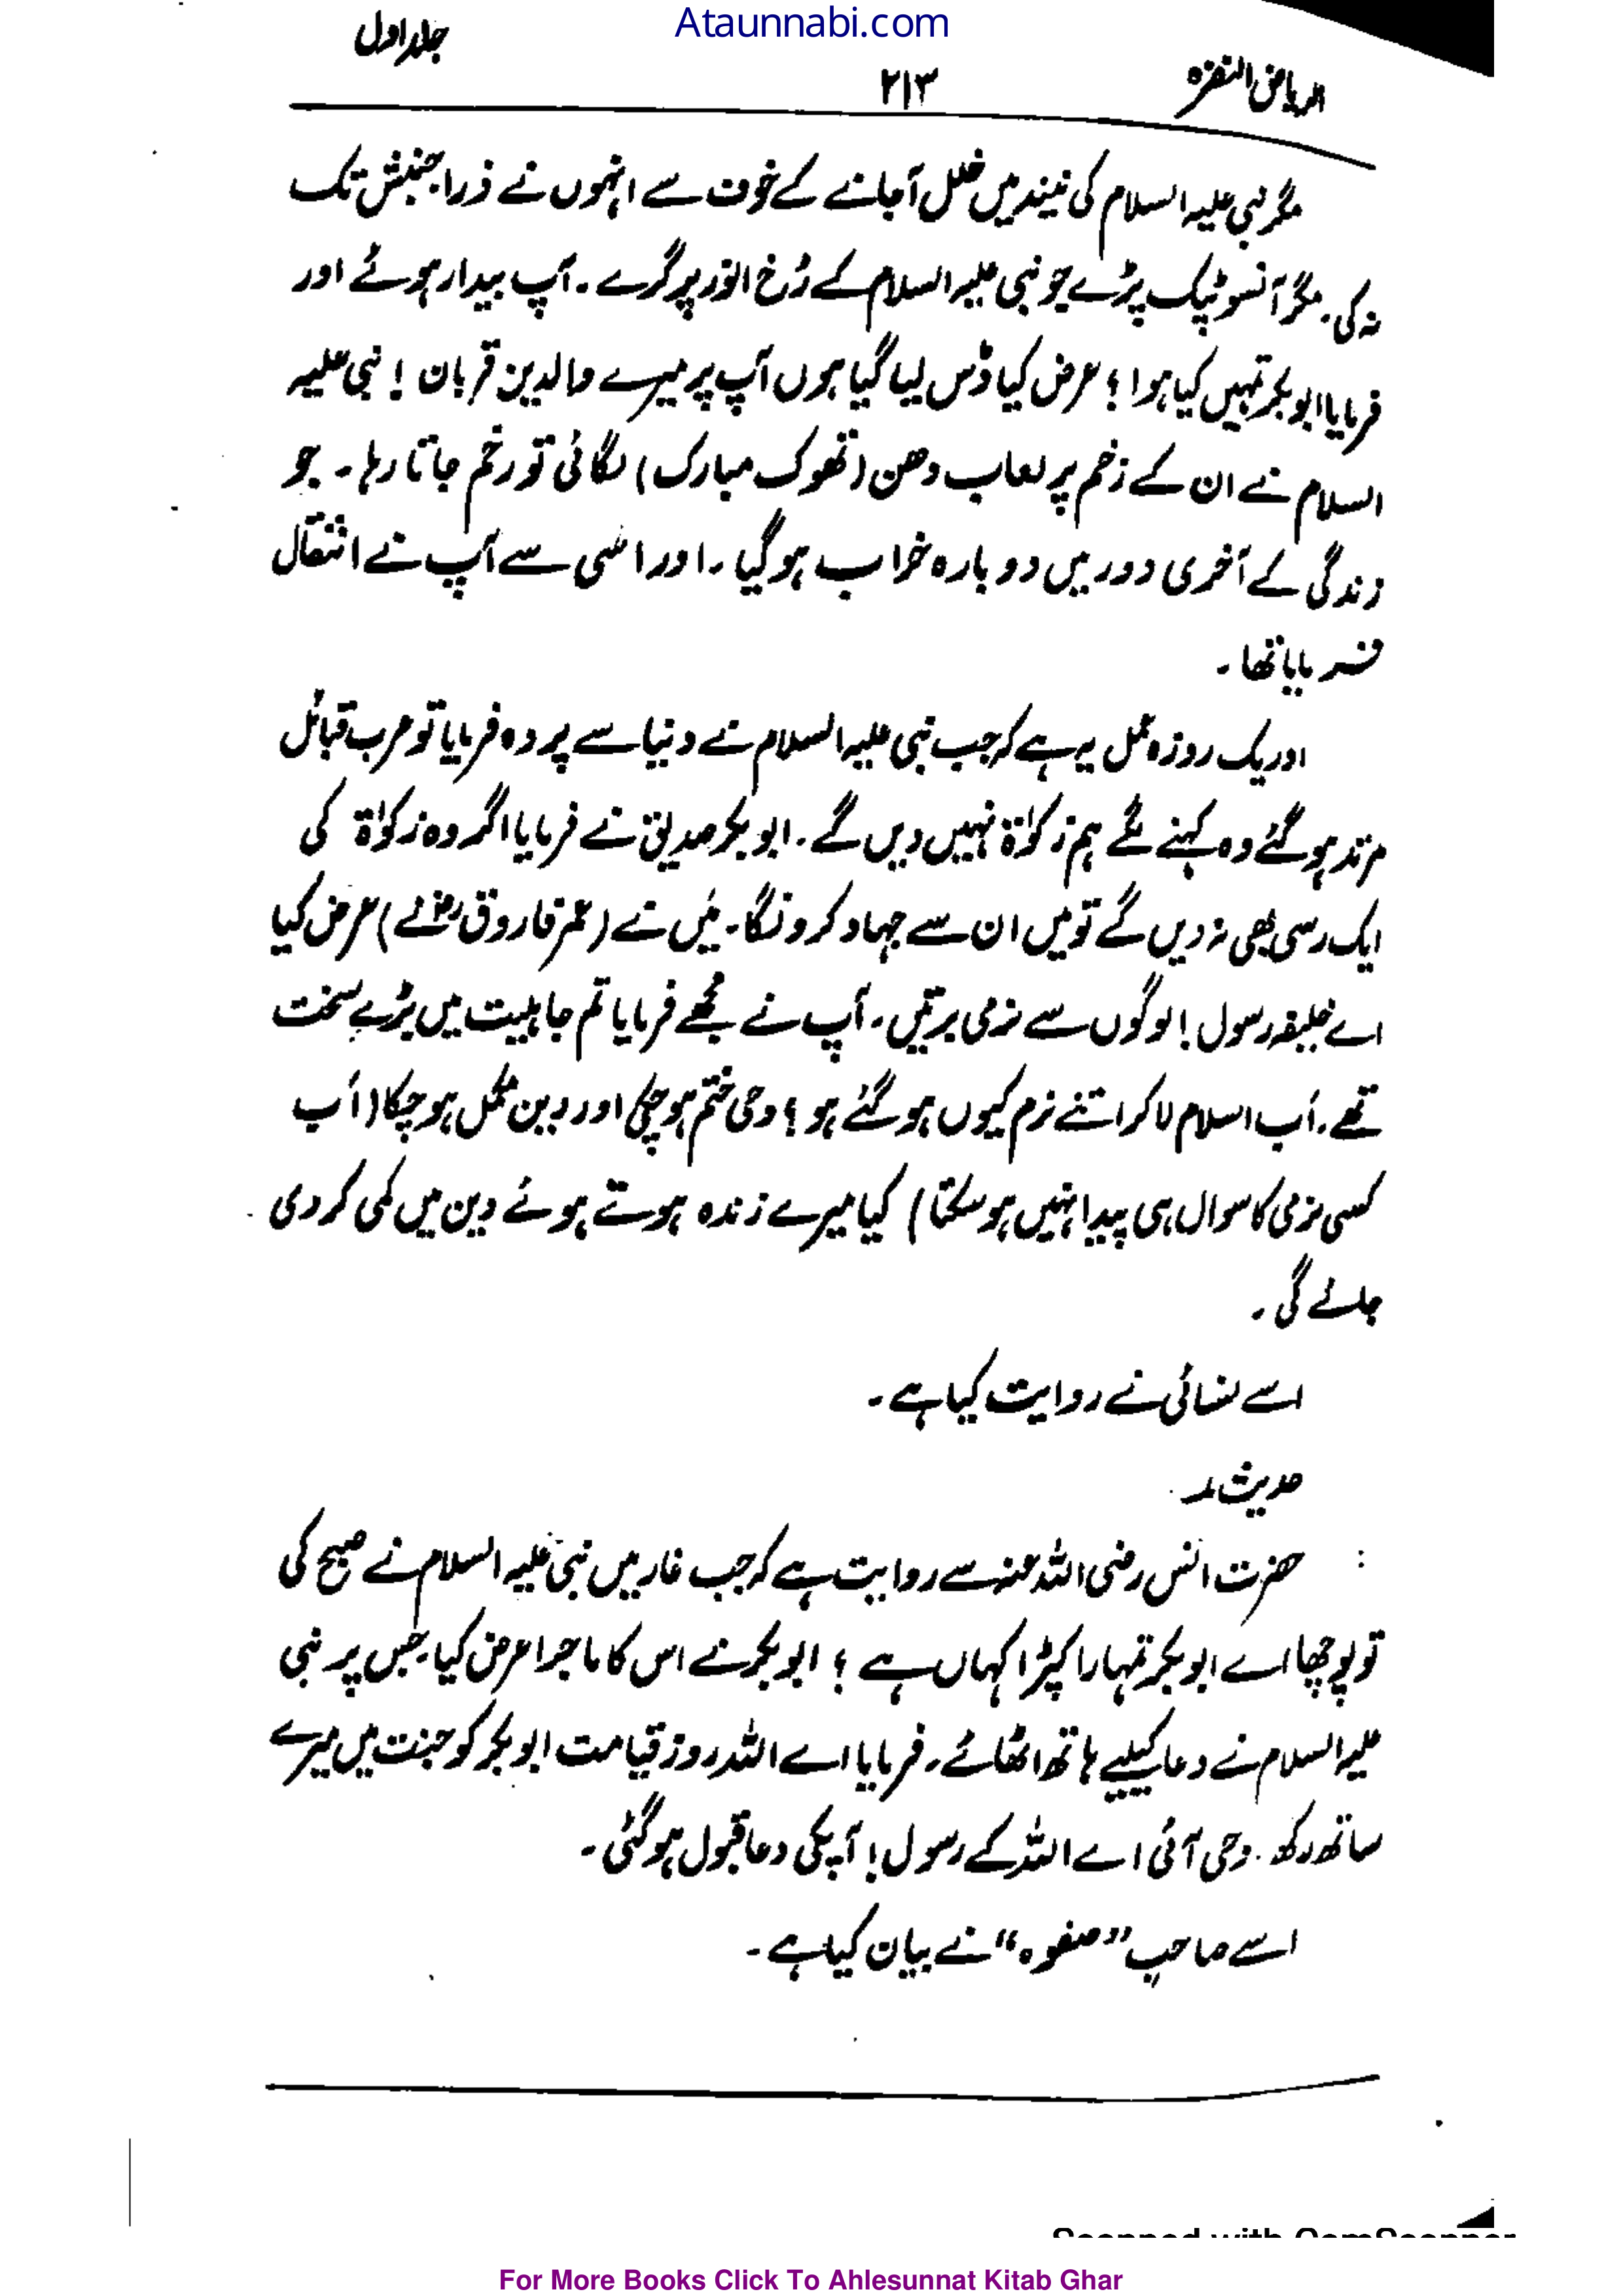 Ataunnabi.com
الریاض النضرہ ۲۱۳ جلد اول
مگر نبی علیہ السلام کی نیند میں خلل آجانے کے خوف سے انہوں نے ذرا جنبش تک
نہ کی. مگر آنسو ٹپک پڑے جو نبی علیہ السلام کے رُخ انور پر گرے ۔ آپ بیدار ہوئے اور
فرمایا ابوبکر تمہیں کیا ہوا ؟ عرض کیا ڈس لیا گیا ہوں آپ پر میرے والدین قربان ! نبی علیہ
السلام نے ان کے زخم پر لعاب دھن (تھوک مبارک) لگائی تو زخم جاتا رہا ۔ جو
زندگی کے آخری دور میں دوبارہ خراب ہوگیا ۔ اور اسی سے آپ نے انتقال
فرمایا تھا ۔
اور یک روزہ عمل یہ ہے کہ جب نبی علیہ السلام نے دنیا سے پردہ فرمایا تو عرب قبائل
مرتد ہوگئے وہ کہنے لگے ہم زکوٰۃ نہیں دیں گے ۔ ابوبکر صدیق نے فرمایا اگر وہ زکوٰۃ کی
ایک رسی بھی نہ دیں گے تو میں ان سے جہاد کرونگا ۔ میں نے (عمر فاروق رض نے) عرض کیا
اے خلیفہ رسول ! لوگوں سے نرمی برتیں ۔ آپ نے مجھے فرمایا تم جاہلیت میں بڑے سخت
تھے ۔ اَب اسلام لا کر اتنے نرم کیوں ہو گئے ہو ؟ وحی ختم ہوچکی اور دین مکمل ہو چکا (اَب
کسی نرمی کا سوال ہی پیدا نہیں ہو سکتا) کیا میرے زندہ ہوتے ہوئے دین میں کمی کر دی
جائے گی ۔
اسے نسائی نے روایت کیا ہے ۔
حدیث :
حضرت انس رضی اللہ عنہ سے روایت ہے کہ جب غار میں نبی علیہ السلام نے صبح کی
تو پوچھا اے ابوبکر تمہارا کپڑا کہاں ہے ؟ ابوبکر نے اس کا ماجرا عرض کیا ۔ جس پر نبی
علیہ السلام نے دعا کیلیے ہاتھ اٹھائے ۔ فرمایا اے اللہ روز قیامت ابوبکر کو جنت میں میرے
ساتھ رکھ ۔ وحی آئی اے اللہ کے رسول ! آپکی دعا قبول ہوگئی ۔
اسے صاحبِ ”صفوہ“ نے بیان کیا ہے ۔
Scanned with CamScanner
For More Books Click To Ahlesunnat Kitab Ghar